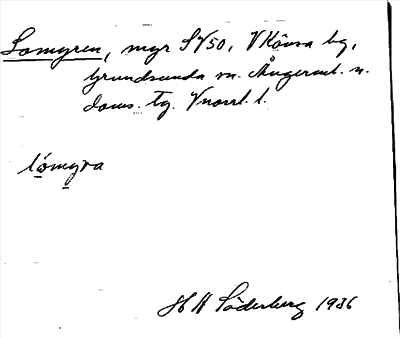 Lomyren, myr SV50, V Könsa bg,
Grundsunda sn. Ångerml. n.
doms. tg. Vnorrl. l.
lòmyra
H H Söderberg 1936